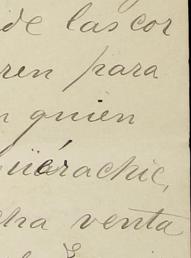 de las cor
ren para
n quien
güérachic,
cha venta